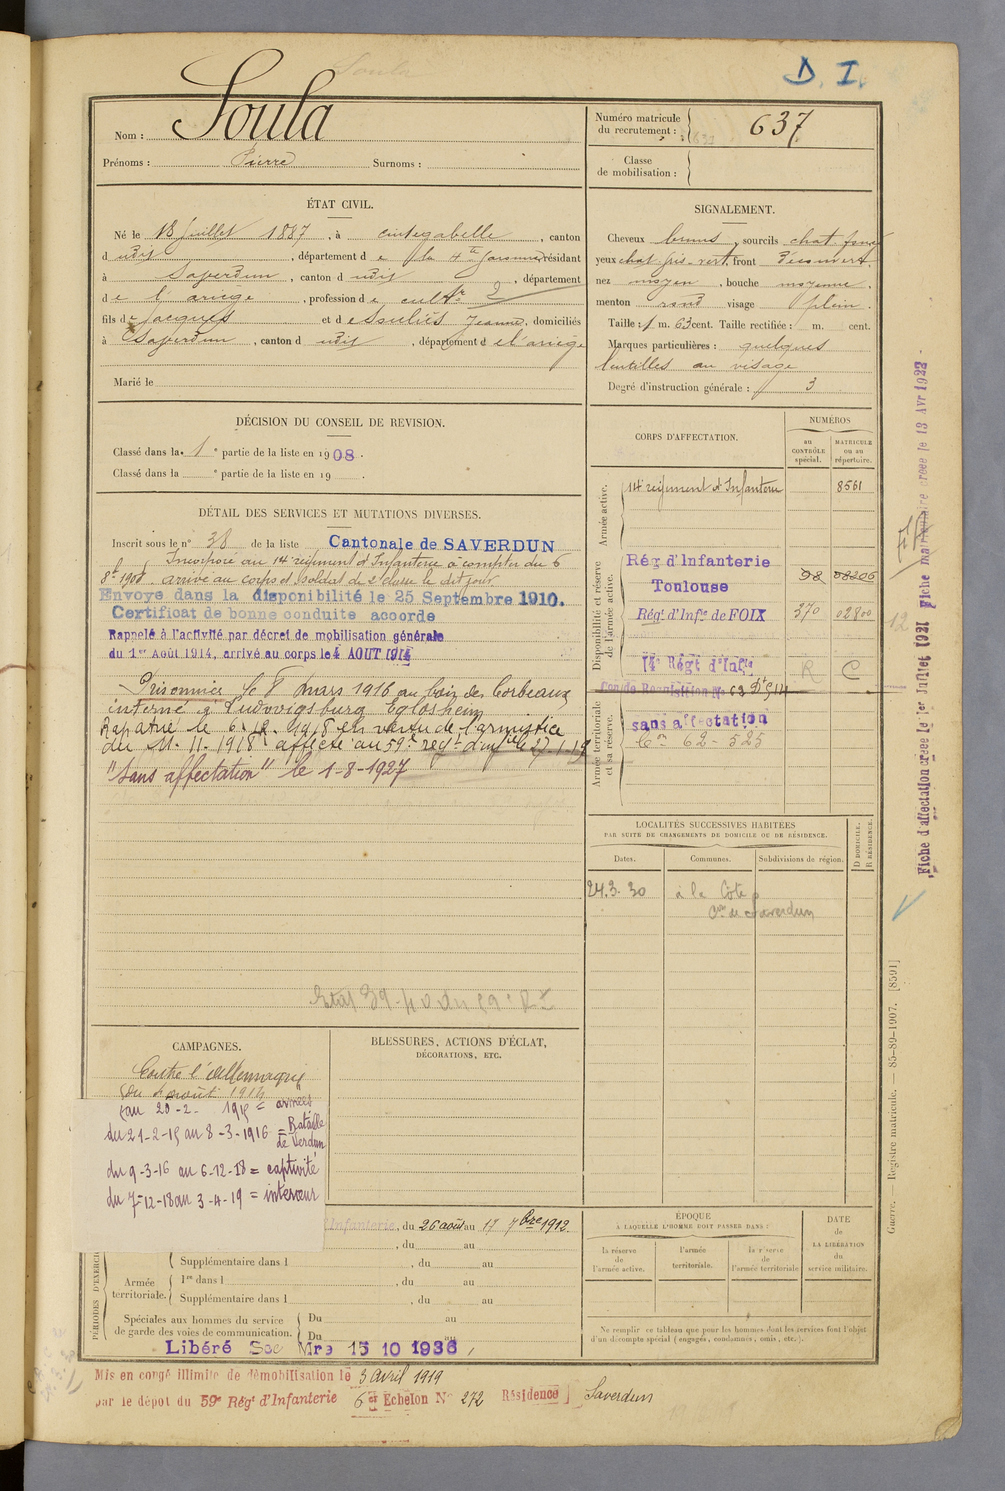 D. I.
Nom : Soula
Prénoms : Pierre Surnoms :
Numéro matricule du recrutement : 637
Classe de mobilisation :
ÉTAT CIVIL.
Né le 18 Juillet 1887, à Cintegabelle, canton
d udit, département de la Hte Garonne, résidant
à Saverdun, canton d udit, département
de l'ariège, profession de cultr 2
fils de Jacques et de Soulié Jeanne, domiciliés
à Saverdun, canton d udit, département de l'ariège
Marié le
SIGNALEMENT.
Cheveux bruns, sourcils chat. foncé
yeux chat gris-vert, front découvert,
nez moyen, bouche moyenne,
menton rond visage plein.
Taille : 1 m. 63 cent. Taille rectifiée : m. cent.
Marques particulières : quelques
lentilles au visage
Degré d'instruction générale : 3
DÉCISION DU CONSEIL DE REVISION.
Classé dans la 1e partie de la liste en 1908.
Classé dans la e partie de la liste en 19 .
DÉTAIL DES SERVICES ET MUTATIONS DIVERSES.
Inscrit sous le n° 38 de la liste Cantonale de SAVERDUN
Incorporé au 14e régiment d'Infanterie à compter du 6
8bre 1908 arrivé au corps et soldat de 2e classe le dit jour
Envoyé dans la disponibilité le 25 Septembre 1910.
Certificat de bonne conduite accordé
Rappelé à l'activité par décret de mobilisation générale
du 1er Août 1914, arrivé au corps le 4 AOUT 1914
Prisonnier le 8 mars 1916 au bois des Corbeaux
interné à Ludwigsburg Eglosheim
Rapatrié le 6.12.1918 en vertu de l'armistice
du 11.11.1918 affecté au 59e régt d'infie le 27.1.19
"Sans affectation" le 1-8-1927
CORPS D'AFFECTATION.
NUMÉROS
au CONTRÔLE spécial.
MATRICULE ou au répertoire.
Armée active.
14e régiment d'Infanterie 8561
Disponibilité et réserve de l'armée active.
Rég d'Infanterie 98 08206
Toulouse
Régt d'Infie de FOIX 370 02800
14e Régt d'Infie R C
Armée territoriale et sa réserve.
sans affectation
62-525
LOCALITÉS SUCCESSIVES HABITÉES
PAR SUITE DE CHANGEMENTS DE DOMICILE OU DE RÉSIDENCE.
Dates. Communes. Subdivisions de région. D DOMICILE. R RÉSIDENCE.
24.3.30 à la Côte
Cne de Saverdun
CAMPAGNES.
Contre l'Allemagne
du 4 août 1914
au 20-2-1915 = armées
du 21-2-15 au 8-3-1916 = Bataille
de Verdun
du 9-3-16 au 6-12-18 = captivité
du 7-12-18 au 3-4-19 = intérieur
BLESSURES, ACTIONS D'ÉCLAT,
DÉCORATIONS, ETC.
PÉRIODES D'EXERCICES
Infanterie, du 26 août au 17 7bre 1912.
, du au
Supplémentaire dans l , du au
Armée territoriale.
1re dans l , du au
Supplémentaire dans l , du au
Spéciales aux hommes du service
de garde des voies de communication.
Du au
Du au
Libéré Sce Mre 15 10 1936
ÉPOQUE
À LAQUELLE L'HOMME DOIT PASSER DANS :
la réserve de l'armée active.
l'armée territoriale.
la réserve de l'armée territoriale
DATE
DE LA LIBÉRATION
du
service militaire.
Ne remplir ce tableau que pour les hommes dont les services font l'objet
d'un décompte spécial (engagés, condamnés, omis, etc.).
Mis en congé illimité de démobilisation le 3 avril 1919
par le dépot du 59e Régt d'Infanterie 6e Echelon N° 272 Résidence Saverdun
Fiche d'affectation créée le 1er Juillet 1921 Fiche matriculaire créée le 13 Avr 1923
12
Guerre. — Registre matricule. — 85-89-1907. [8591]